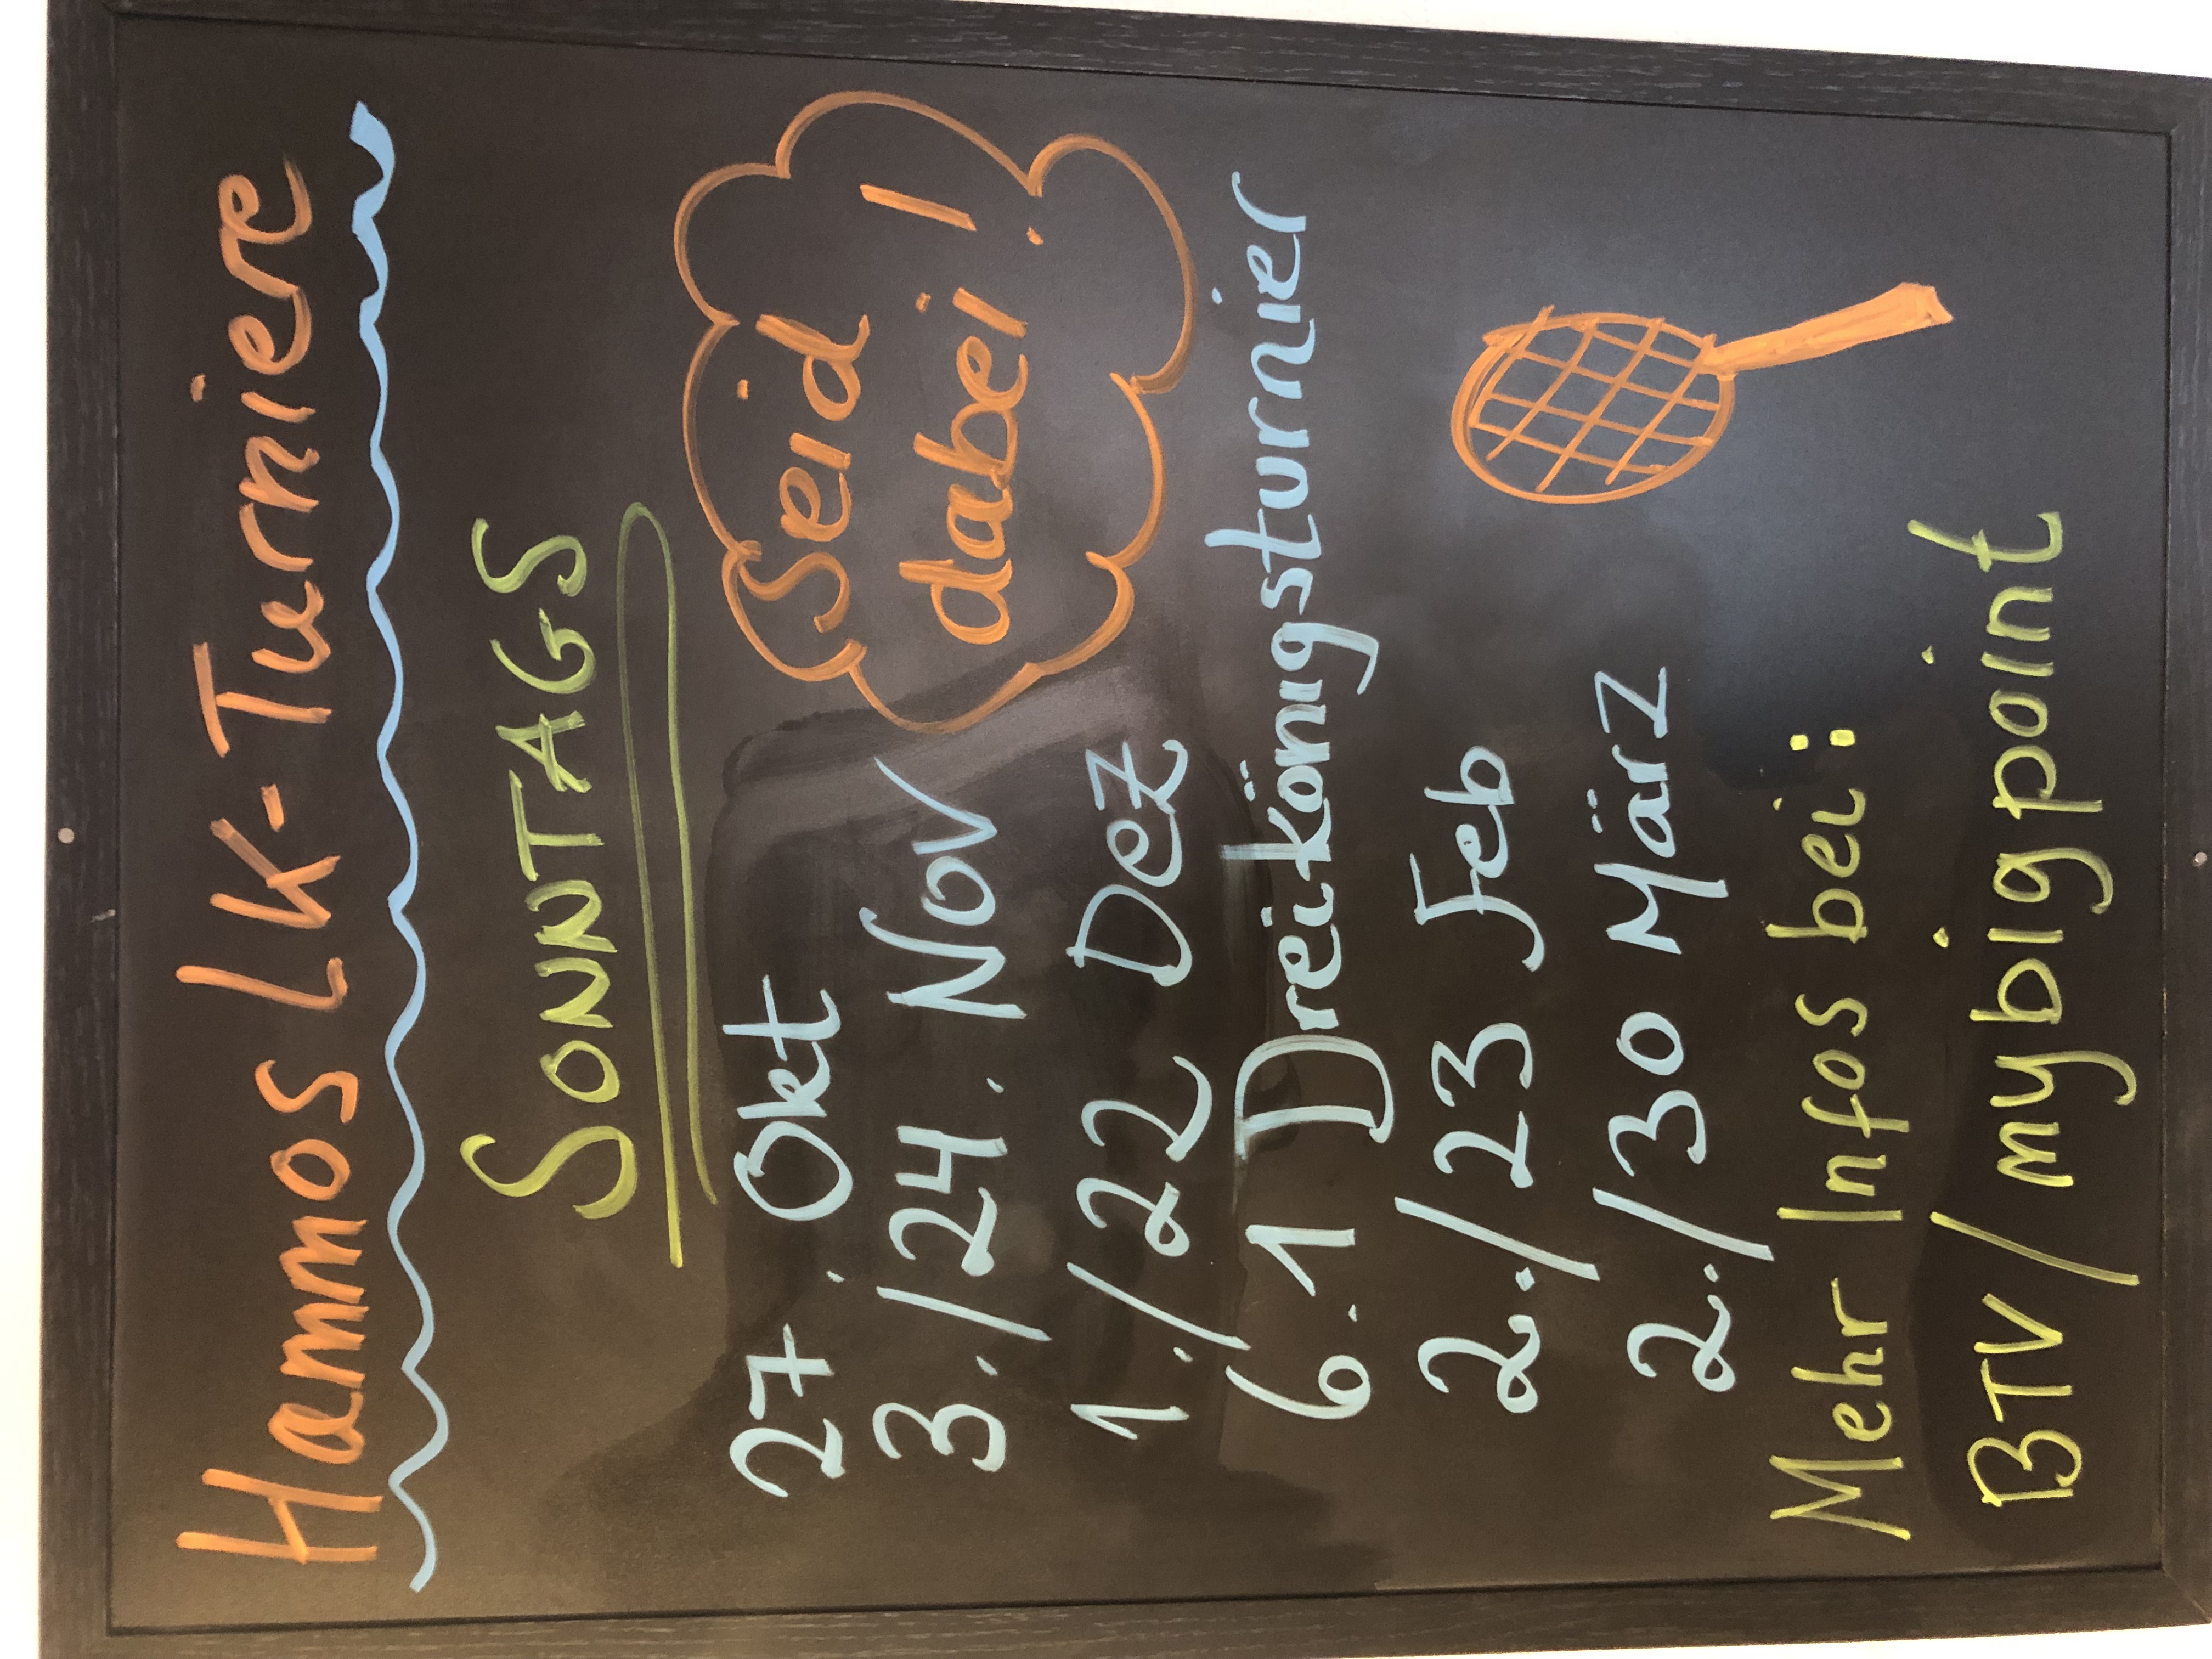 Hammos LK-Turniere
SONNTAGS
27. Okt
Seid
dabei!
3./24. Nov
1./22 Dez
6.1 Dreikönigsturnier
2./23 Feb
2./30 März
Mehr Infos bei:
BTV/mybigpoint